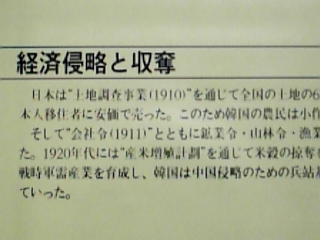 経済侵略と収奪
日本は“土地調査事業(1910)”を通じて全国の土地の6
本人移住者に安価で売った。このため韓国の農民は小作
そして“会社令(1911)”とともに鉱業令・山林令・漁業
た。1920年代には“産米増殖計劃”を通じて米穀の掠奪を
戦時軍需産業を育成し、韓国は中国侵略のための兵站基
ていった。